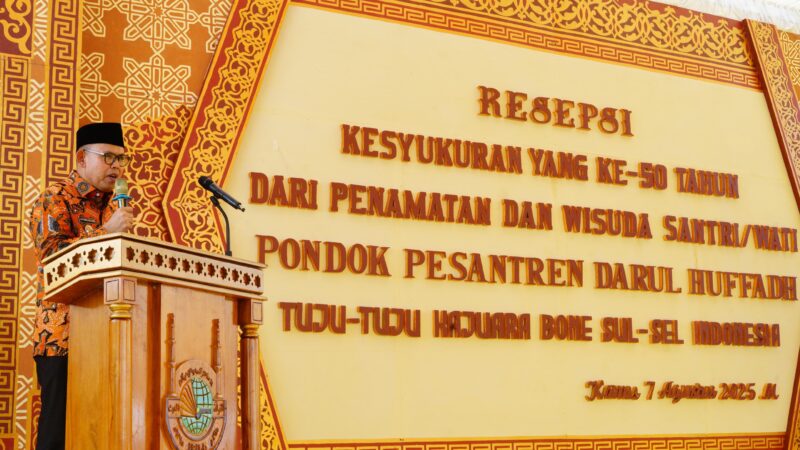 RESEPSI
KESYUKURAN YANG KE-50 TAHUN
DARI PENAMATAN DAN WISUDA SANTRI/WATI
PONDOK PESANTREN DARUL HUFFADH
TUJU-TUJU KAJUARA BONE SUL-SEL INDONESIA
Kamis 7 Agustus 2025 M